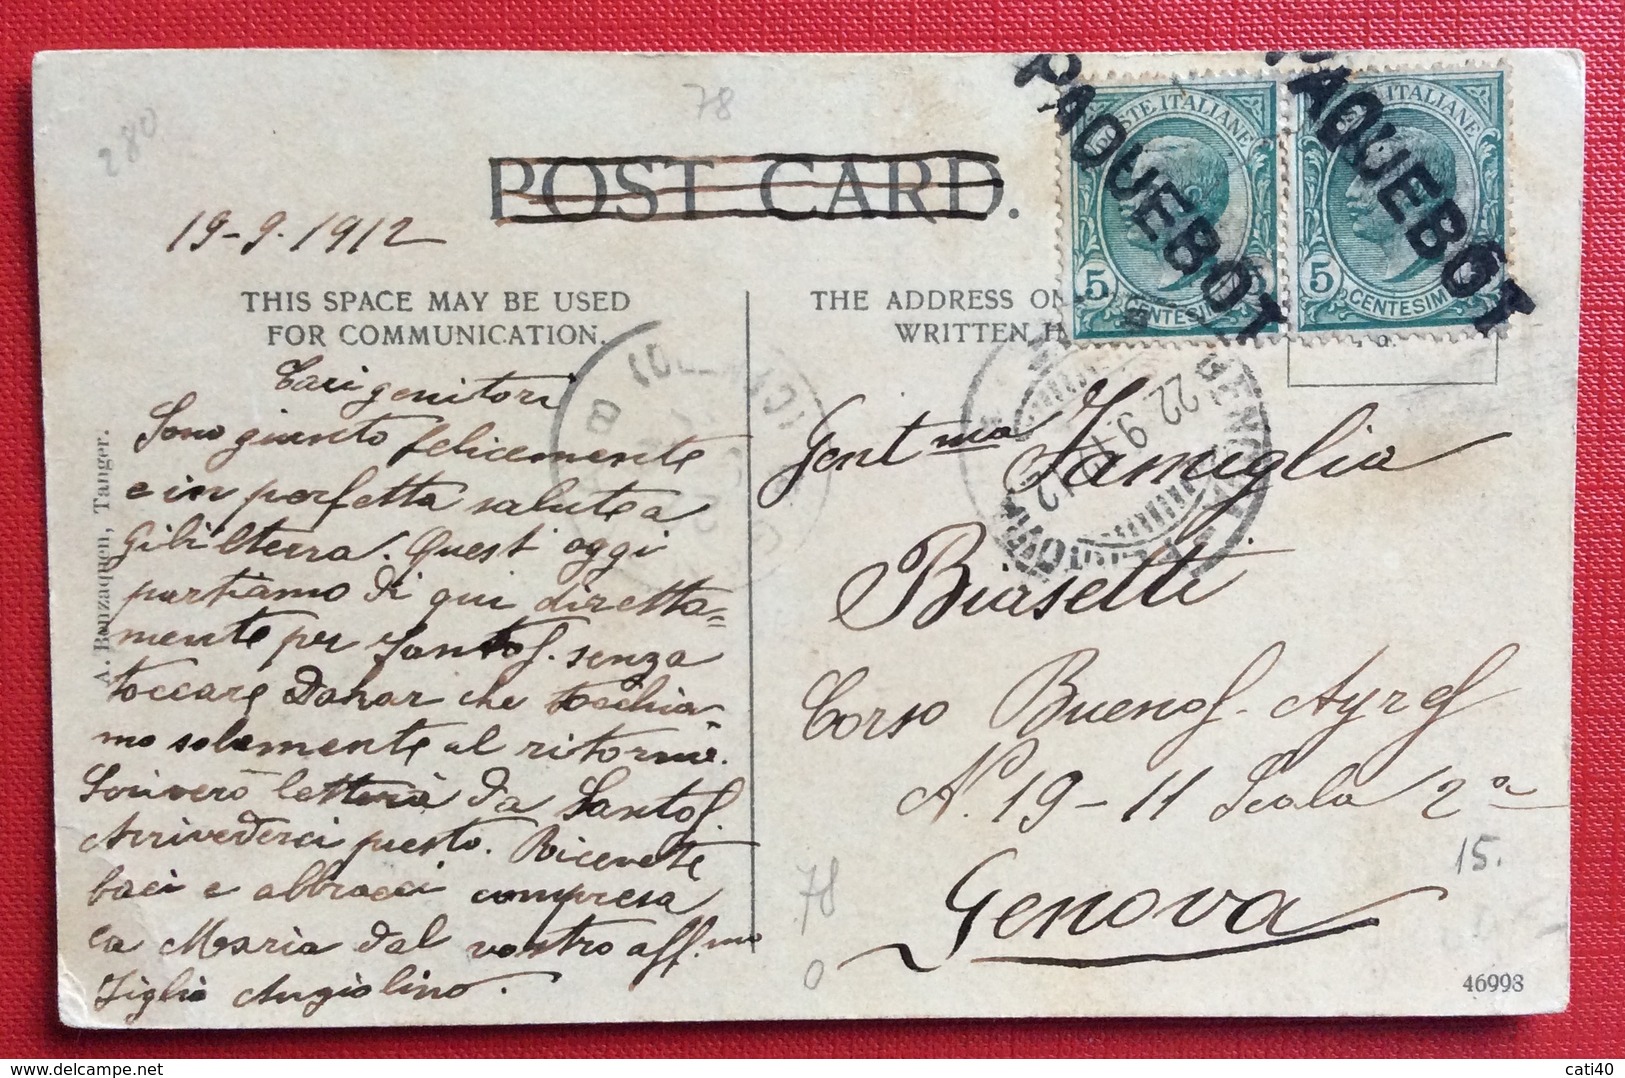 280
78
POST CARD.
19-9-1912
THIS SPACE MAY BE USED
FOR COMMUNICATION.
THE ADDRESS ON
WRITTEN H
POSTE ITALIANE
5 CENTESIMI
PAQUEBOT
POSTE ITALIANE
5 CENTESIMI
PAQUEBOT
22.9.12
Cari genitori
Sono giunto felicemente
e in perfetta salute a
Gibilterra. Quest'oggi
partiamo di qui diretta=
mente per Santos. senza
toccare Dakar che tocchia=
mo solamente al ritorno.
Scriverò lettera da Santos.
Arrivederci presto. Ricevete
baci e abbracci compresa
la Maria dal vostro aff.mo
Figlio Angiolino.
A. Benzaquen, Tanger.
Gent.ma Famiglia
Biasetti
Corso Buenos-Ayres
N°. 19-11 Scala 2a
Genova
15.
78
0
46993
cati40